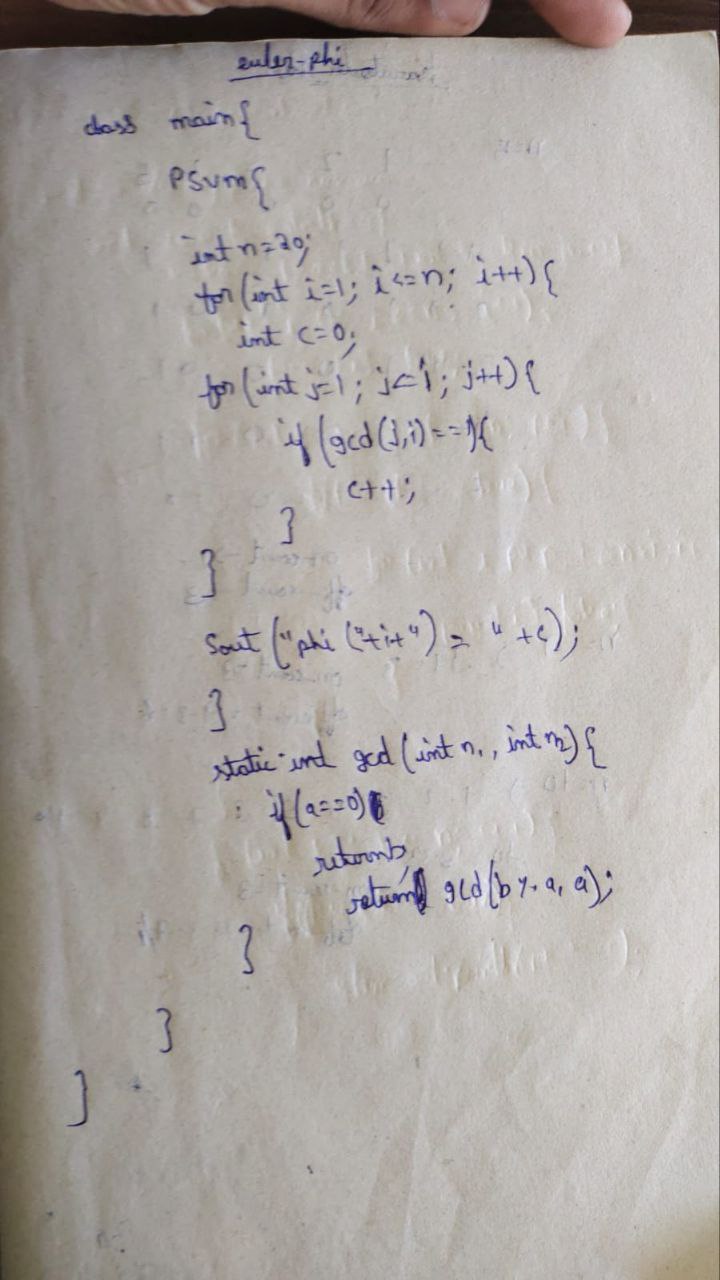 euler-phi
class main{
PSvm{
int n=20;
for(int i=1; i<=n; i++){
int c=0;
for(int j=1; j<i; j++){
if (gcd(j,i)==1){
c++;
}
}
Sout ("phi ("+i+") = " +c);
}
static int gcd (int n1, int n2) {
if(a==0)
return b;
return gcd(b%a, a);
}
}
}